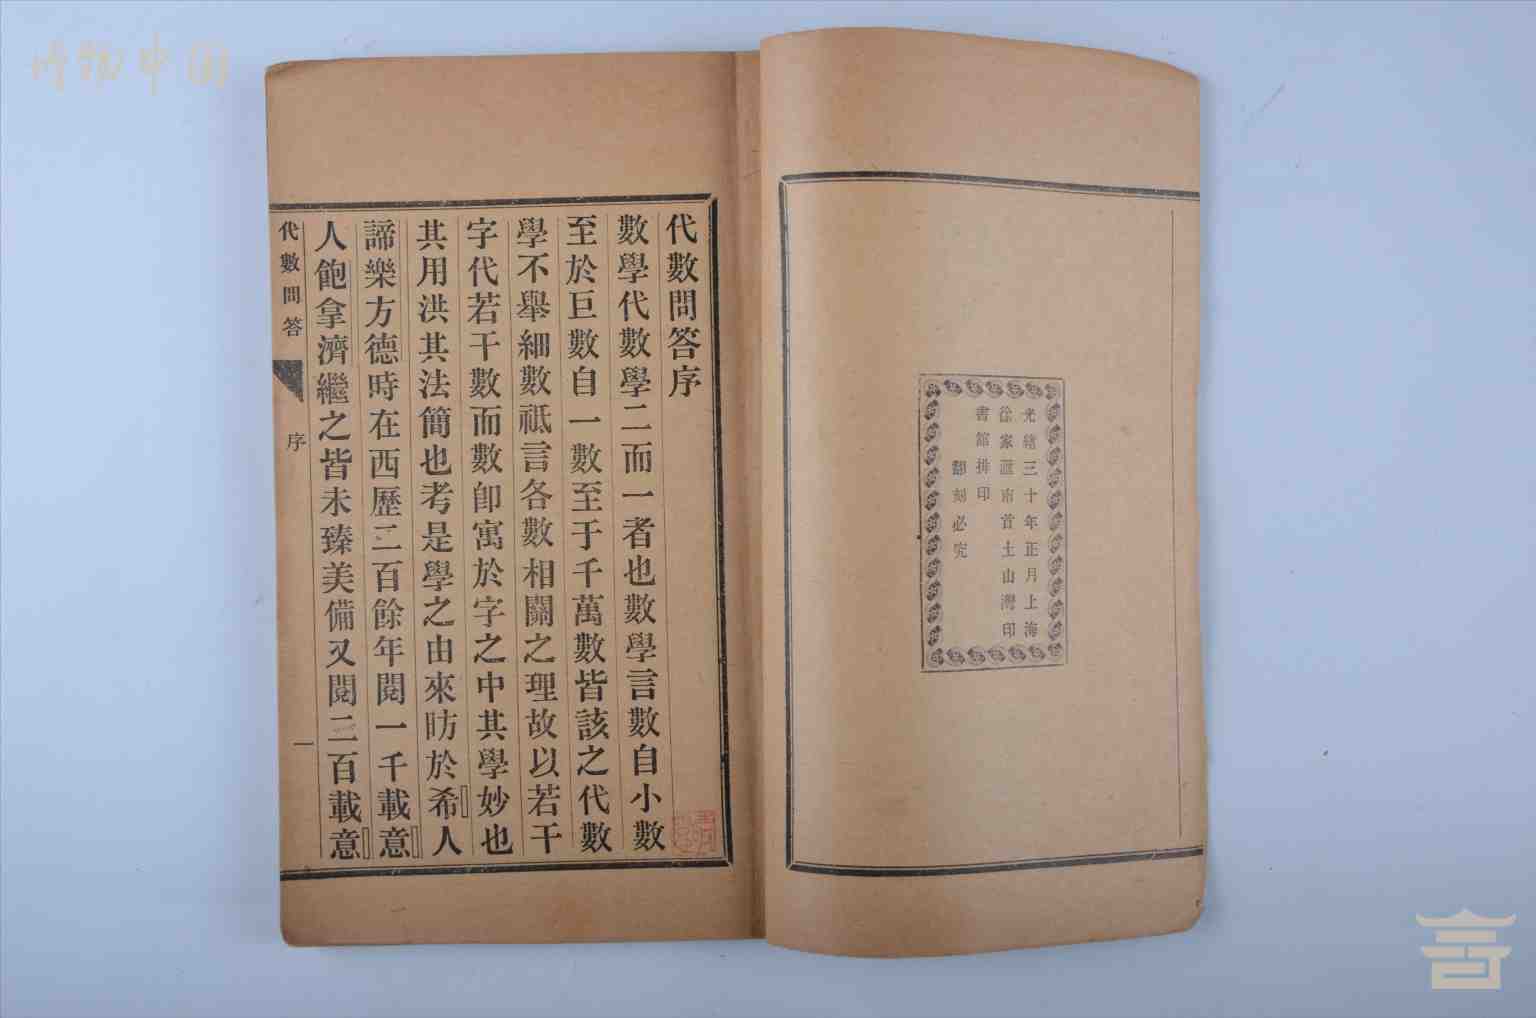 光緒三十年正月上海
徐家匯南首土山灣印
書館排印
翻刻必究
代數問答序
數學代數學二而一者也數學言數自小數
至於巨數自一數至于千萬數皆該之代數
學不舉細數祗言各數相關之理故以若干
字代若干數而數卽寓於字之中其學妙也
其用洪其法簡也考是學之由來昉於希人
諦樂方德時在西歷三百餘年閱一千載意
人飽拿濟繼之皆未臻美備又閱三百載意
代數問答
序
一
博物中国